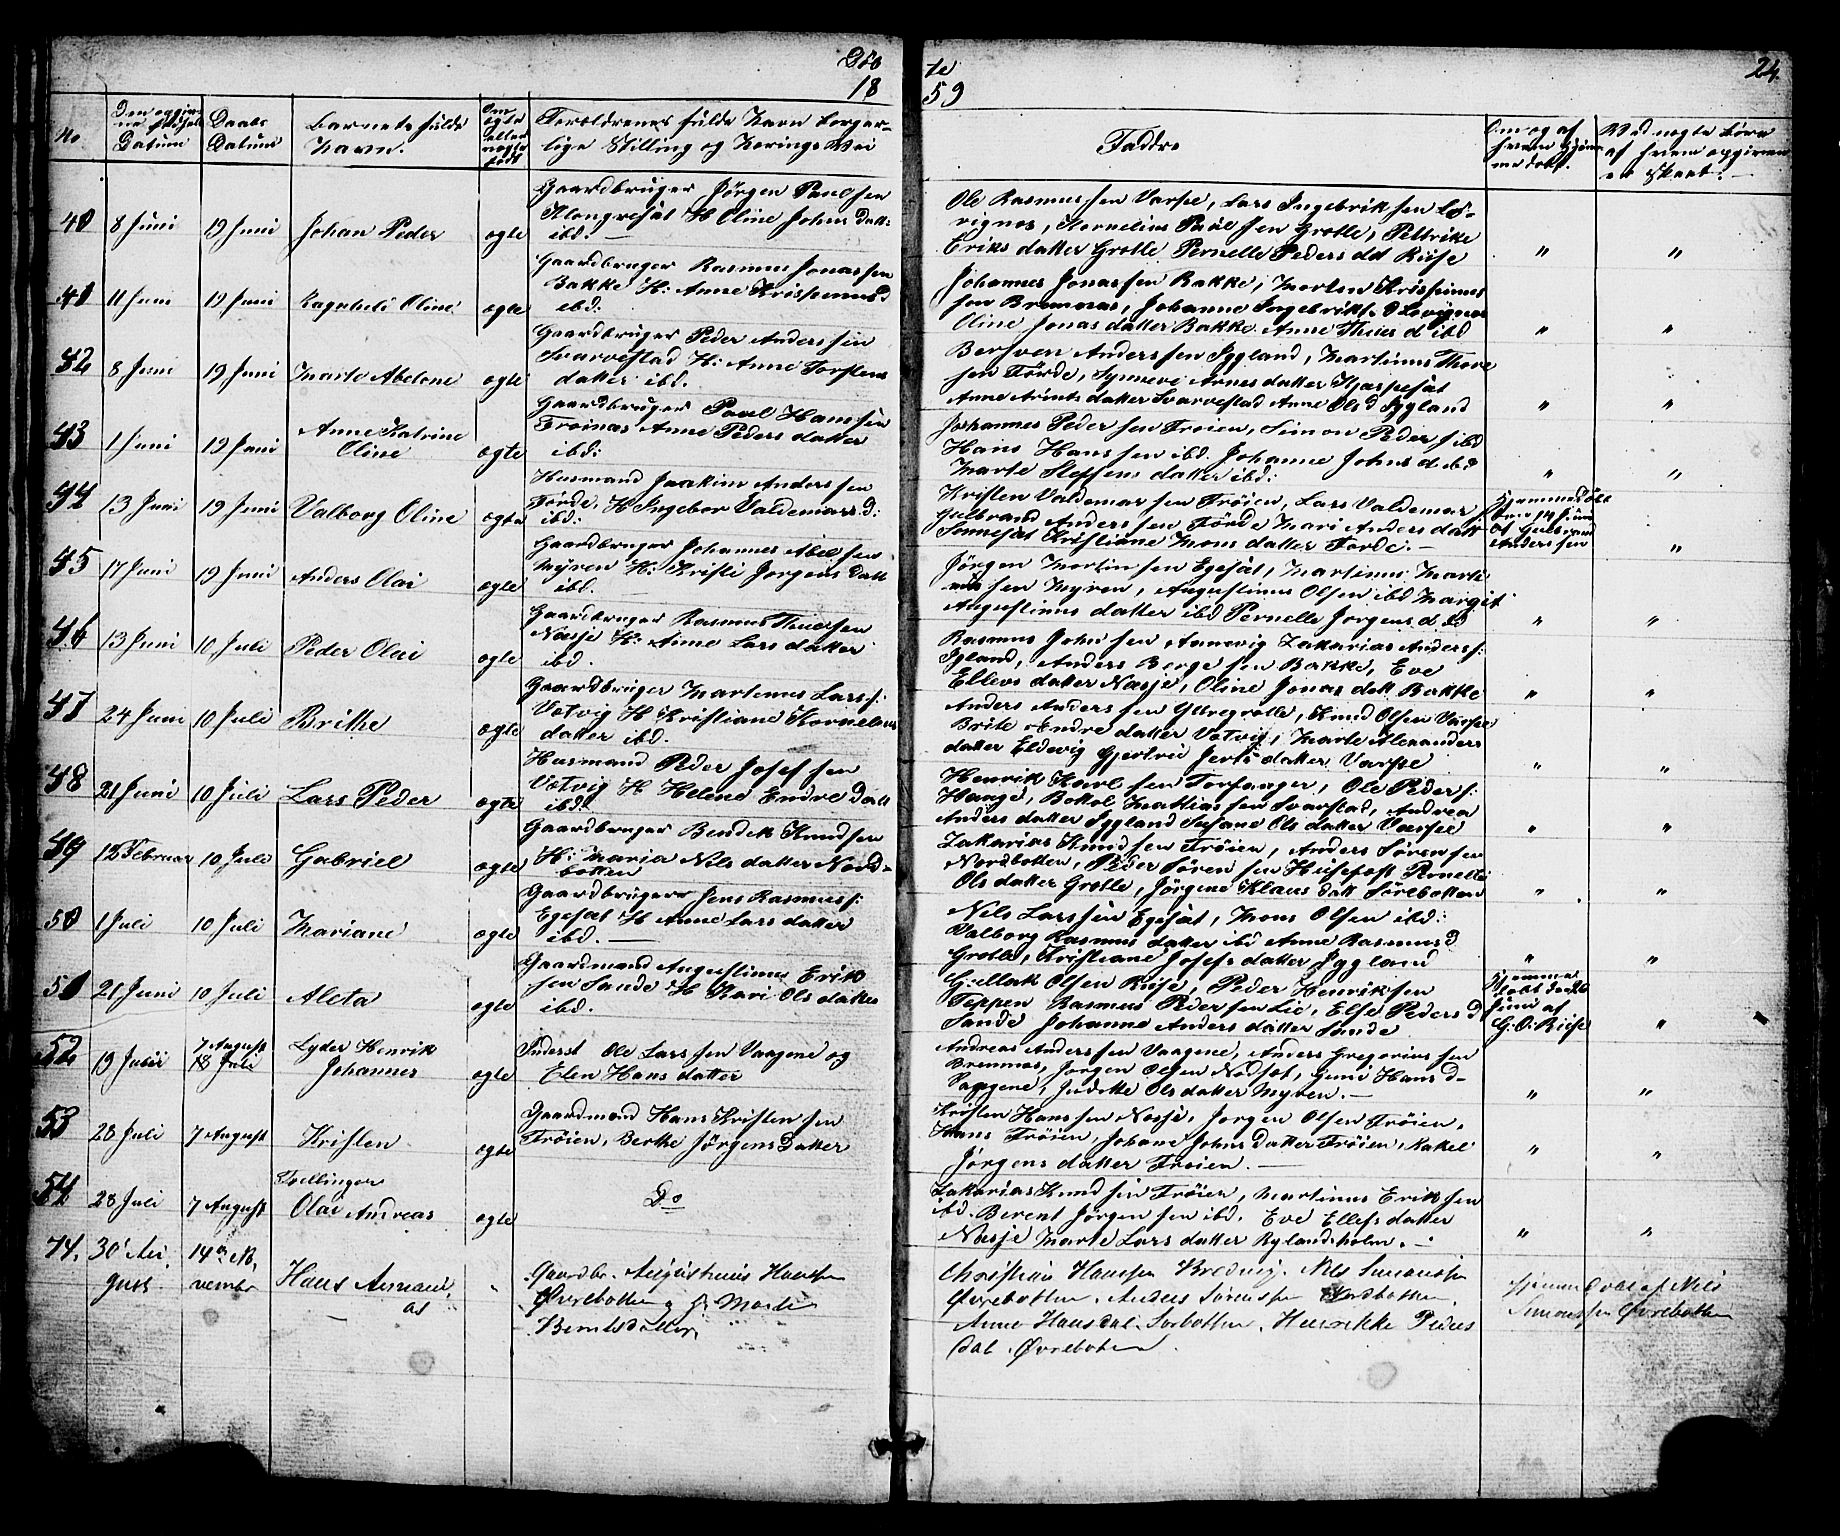 Døb te 24
18 59
No
Den opgivne Fødsels Datum
Daabs Datum
Barnets fulde Navn.
Om ægte eller uægte født
Forældrenes fulde Navn borgerlige Stilling og Nærings Vei
Faddre
Om og af hvem hjemmedøbt.
Ved uægte Børn af hvem opgiven
40 8 Juni 19 Juni Johan Peder ogte
Gaardbruger Jørgen Paulsen
H Oline Johns datt:
ibd.
Ole Rasmussen Varpe, Lars Ingebriksen
Kornelius Paulsen Grotle, Pettrike
Eriks datter Grotle Pernelle Peders dat Riise " "
41 11 Juni 19 Juni Ragnhild Oline ogte
Gaardbruger Rasmus Jonassen
Bakke H: Anne
ibd:
Johannes Jonassen Bakke, Morten
sen Bremnes, Johanne Ingebriks d
Oline Jonas datter Bakke Anne d ibd " "
42 8 Juni 19 Juni Marte Abelone ogte
Gaardbruger Peder Anderssen
Svarvestad H: Anne Torstens
datter ibd.
Anderssen Iggland, Martinus
sen Førde, Synneve Arnes datter
Anne datter Svarvestad Anne Ols d Iggland " "
43 1 Juni 19 Juni Anne Katrine Oline ogte
Gaardbruger Paul Hanssen
Anne Peders datter
ibd:
Johannes Pedersen Trøien, Simon Peders ibd
Hans Hanssen ibd. Johanne Johns d ibd
Marte Steffens datter ibd: " "
44 13 Juni 19 Juni Valborg Oline ogte
Husmand Joakim Anderssen
Førde, H Ingebor Valdemars d:
ibd:
Kristen Valdemarsen Trøien, Lars Valdemar
Gulbrand Anderssen Førde Mari Anders datt
Kristiane Mons datter Førde. —
Hjemmedøbt
den 14 Juni
af Gulbrand
Anderssen "
45 17 Juni 19 Juni Anders Olai ogte
Gaardbruger Johannes Abelsen
Myren H: Kristi Jørgens datt
ibd.
Jørgen Mortinsen Egesæt, Martinus
sen Myren, Augustinus Olsen ibd Margit
Augustinus datter ibd Pernelle Jørgens d ibd " "
46 13 Juni 10 Juli Peder Olai ogte
Gaardbruger Rasmus
Nasje H: Anne Lars datter
ibd.
Rasmus Johnsen Annevig Zakarias Anders:
Igland, Anders Bergesen Bakke, Eve
Ellevs datter Nasje, Oline Jonas datt Bakke " "
47 24 Juni 10 Juli Brithe ogte
Gaardbruger Martinus Lars:
Vetvig H Kristiane Kornelius
datter ibd.
Anders Anderssen Yttregrotle, Knud Olsen Varpe
Brite Endre datter Vetvig, Marte Alexanders
datter Eldevig Gjertrud datter Varpe " "
48 21 Juni 10 Juli Lars Peder ogte
Husmand Peder Josefsen
Vetvig H Helene Endre datt
ibd:
Henrik Karlsen Torfanger, Ole Peders:
Hauge, Mathiassen Svarstad, Andrea
Anders datter Iggland Susane Ols datter Varpe " "
49 12 Februar 10 Juli Gabriel ogte
Gaardbruger Bendik Knudsen
H: Maria Nils datter Nord-
botten
Zakarias Knudsen Trøien, Anders Sørensen
Nordbotten, Peder Sørensen Husefest Pernelle
Ols datter Grotle, Jørgene Klaus datt Sørebotten " "
50 1 Juli 10 Juli Mariane ogte
Gaardbruger Jens Rasmuss:
Egesæt H Anne Lars datter
ibd. —
Nils Larssen Egesæt, Mons Olsen ibd:
Valborg Rasmus datter ibd Anne Rasmus d
Grotle, Kristiane Josefs datter Iggland " "
51 21 Juni 10 Juli Aleta ogte
Gaardmand Augustinus Erik
sen Sande H Kari Ols datter
ibd.
Gullak Olsen Riise, Peder Henriksen
Teppen Rasmus Pedersen Lie, Else Peders d
Sande Johanne Anders datter Sande
Juni af
G. O. Riise "
52 19 Juli 7 August 18 Juli Lyder Henrik Johannes ogte
Inderst Ole Larssen Vaagene og
Elen Hans datter
Andreas Anderssen Vaagene, Anders Gregoriussen
Bremnes, Jørgen Olsen Hans d-
Vaagene, Judikte Ols datter Myren. — " "
53 28 Juli 7 August Kristen ogte
Gaardmand Hans Kristensen
Trøien, Berthe Jørgens datter
Kristen Hanssen Nasje, Jørgen Olsen Trøien,
Hans Trøien, Johane Johns datter Trøien, Rakel
Jørgens datter Trøien. — " "
54 28 Juli 7 August Tvellinger Olai Andreas ogte
Do
Zakarias Knudsen Trøien, Martinus Eriksen
ibd. Berent Jørgensen ibd. Eve Ellefs datter
Nasje Marte Lars datter Rylandsholm. — " "
74. 30 Au gust. 14de No vembr Hans Annani as "
Gaardbr. Augustinus Hanssen
Øvrebotten og H.
Berntsdatter
Christian Hanssen Bredvig. Nils Simonssen
Øvrebotten. Anders Sørenssen Nordbotten.
Anne Hansdat. Sørbotten. Henrikke Peders
dat. Øvrebotten.
Hjemmedøbt af Nils
Simonssen Øvrebotten